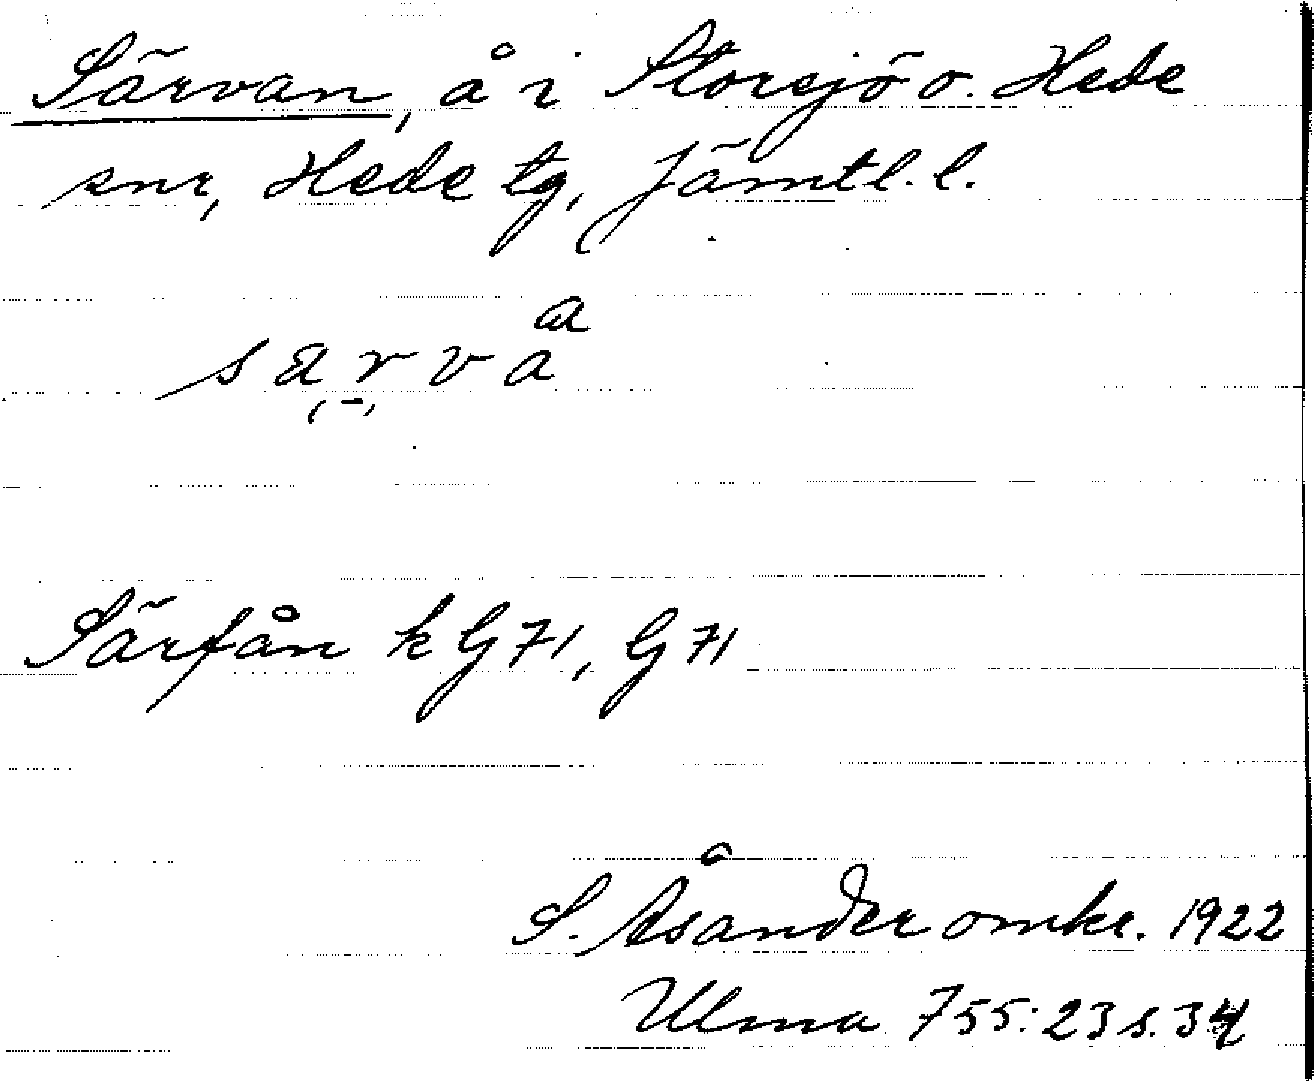 Särvan, å i Storsjö o. Hede
snr, Hede tg, Jämtl. l.
a
s a r v a
Särfån k G 71, G 71
S. Åsander omkr. 1922
Ulma 755:23 s. 34